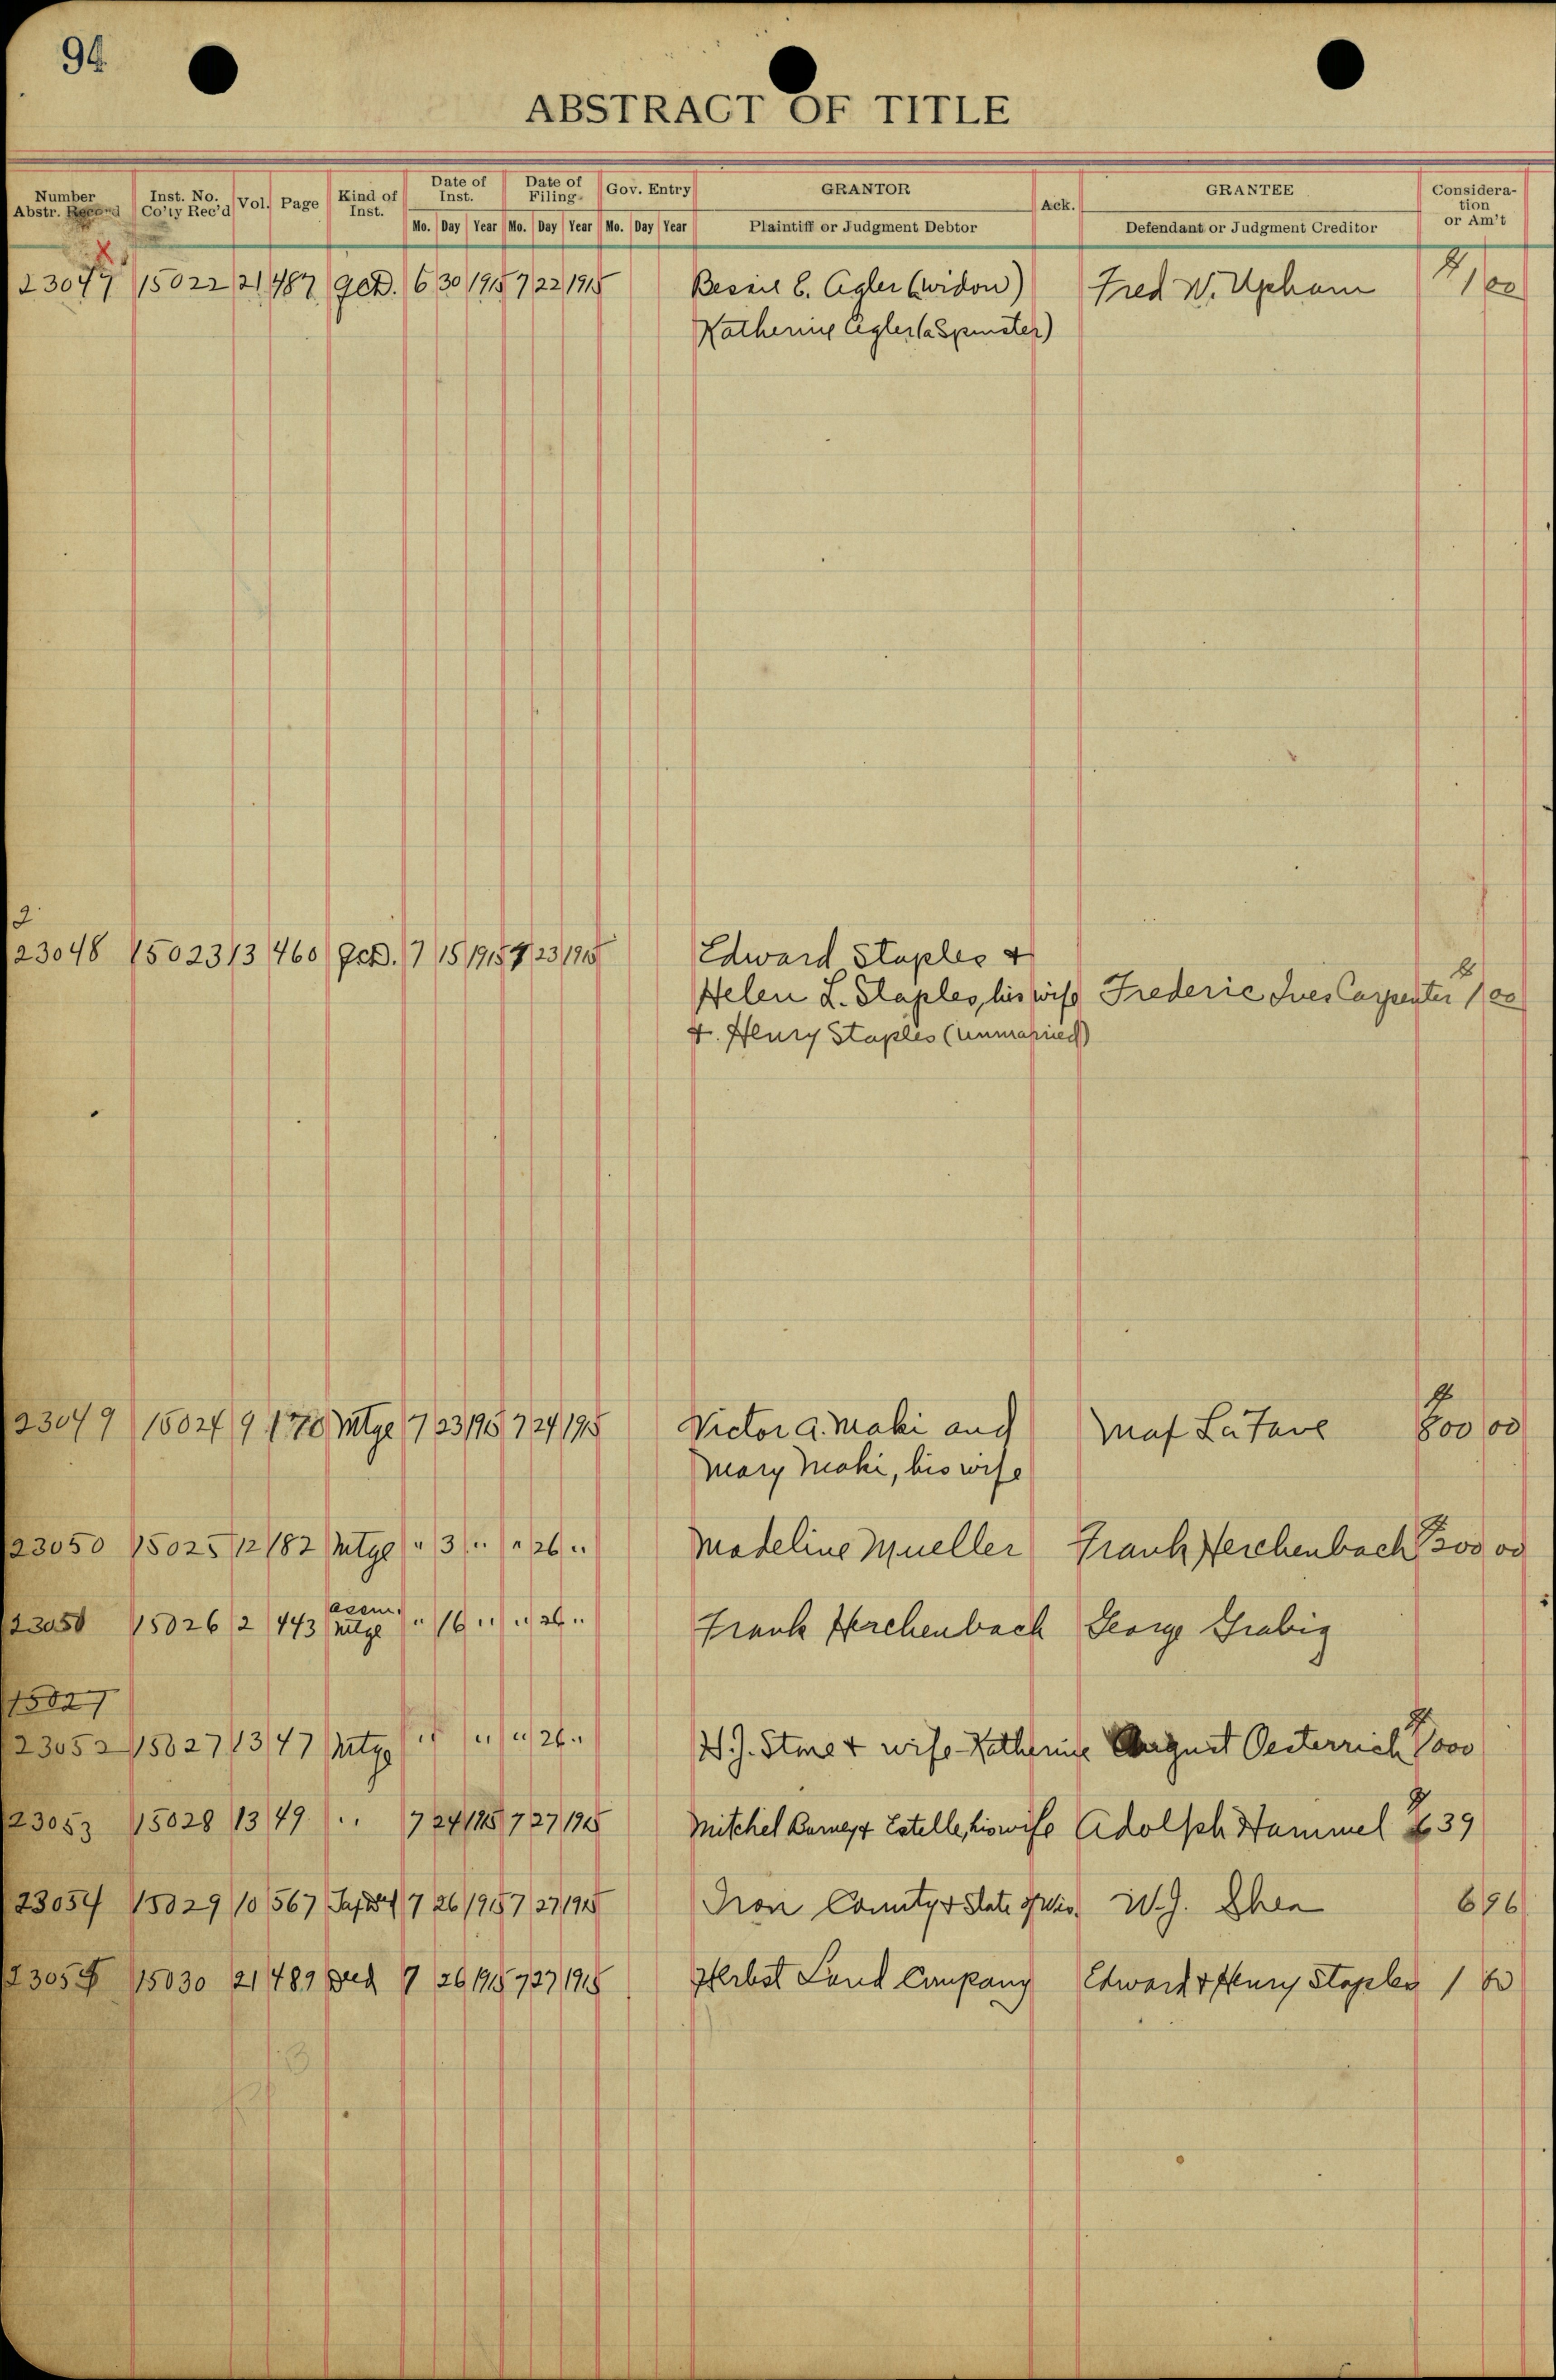 94
ABSTRACT OF TITLE
Number Abstr. Record Inst. No. Co'ty Rec'd Vol. Page Kind of Inst. Date of Inst. Date of Filing Gov. Entry GRANTOR Ack. GRANTEE Consideration or Am't
Mo. Day Year Mo. Day Year Mo. Day Year Plaintiff or Judgment Debtor Defendant or Judgment Creditor
X
23047 15022 21 487 QCD. 6 30 1915 7 22 1915 Bessie E. Agler (widow) Fred W. Upham $1 00
Katherine Agler (a Spinster)
2
23048 15023 13 460 QCD. 7 15 1915 7 23 1915 Edward Staples &
Helen L. Staples, his wife Frederic Ives Carpenter $1 00
&. Henry Staples (unmarried)
23049 15024 9 170 Mtge 7 23 1915 7 24 1915 Victor A. Maki and Maf LaFave $800 00
Mary Maki, his wife
23050 15025 12 182 Mtge " 3 " " 26 " Madeline Mueller Frank Herchenbach 00
23051 15026 2 443 assm. Mtge " 16 " " 26 " Frank Herchenbach George Grabig
15027
23052 15027 13 47 Mtge " " " 26 " Stone & wife Katherine August Oesterreich $1000
23053 15028 13 49 " 7 24 1915 7 27 1915 Mitchel Barney & Estelle, his wife Adolph Hammel $639
23054 15029 10 567 7 26 1915 7 27 1915 Iron County & State of Wis. W.J. Shea 696
23055 15030 21 489 Deed 7 26 1915 7 27 1915 Herbst Land Company Edward & Henry Staples 1 00